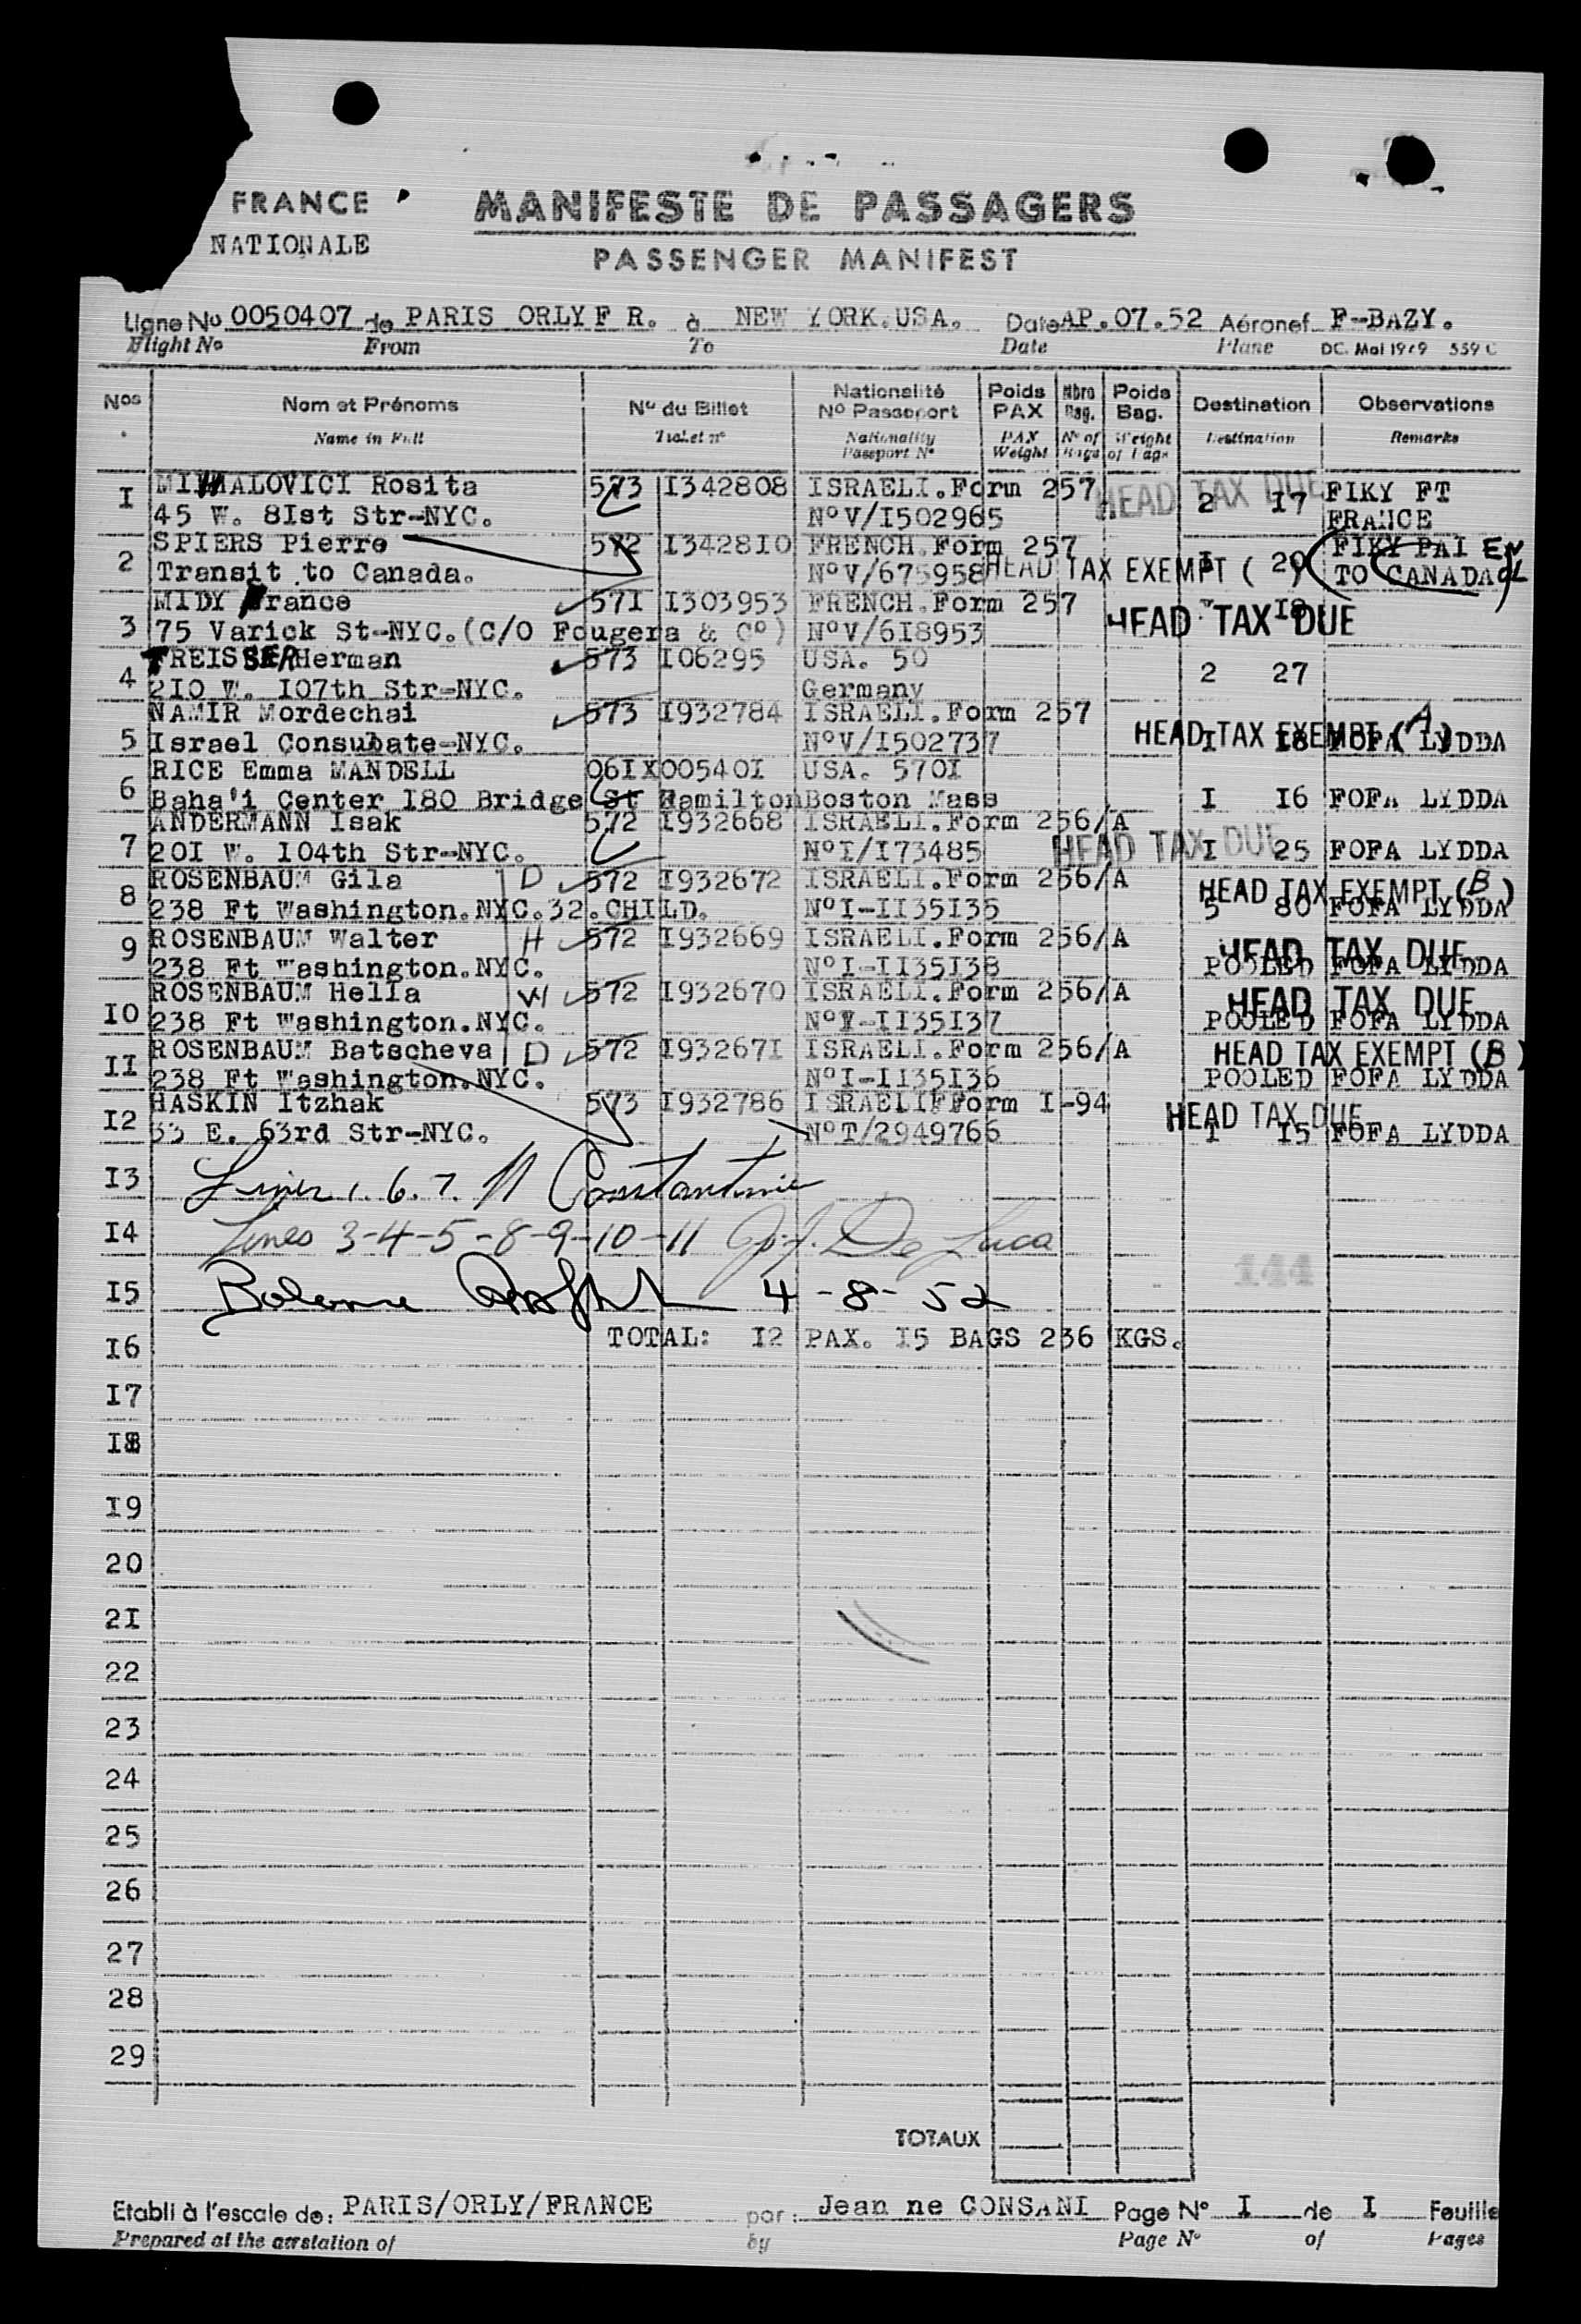 FRANCE
NATIONALE
MANIFESTE DE PASSAGERS
PASSENGER MANIFEST
Ligne No 0050407 de PARIS ORLY F R. à NEW YORK.USA. Date AP.07.52 Aéronef F-BAZY.
Flight No From To Date Plane DC. Mai 1949 559 C
Nos Nom et Prénoms No du Billet Nationalité No Passeport Poids PAX Nbre Bag. Poids Bag. Destination Observations
Name in Full Ticket no Nationality Passport No PAX Weight No of Bags Weight of Bags Destination Remarks
I MIHALOVICI Rosita 573 I342808 ISRAELI.Form 257 HEAD TAX DUE 2 I7 FIKY FT
45 W. 8Ist Str-NYC. NoV/I502965 FRANCE
2 SPIERS Pierre 572 I3428I0 FRENCH.Form 257 FIKY PAI
Transit to Canada. NoV/675958 HEAD TAX EXEMPT ( ) I 20 TO CANADA
3 MIDY France 57I I303953 FRENCH.Form 257
75 Varick St-NYC.(C/O Fougera & Co) NoV/6I8953 HEAD TAX DUE I8
4 TREISSER Herman 573 I06295 USA. 50
2I0 W. I07th Str-NYC. Germany 2 27
5 NAMIR Mordechai 573 I932784 ISRAELI.Form 257
Israel Consulate-NYC. NoV/I502737 HEAD TAX EXEMPT (A) I I8 FOFA LYDDA
6 RICE Emma MANDELL 06IX00540I USA. 570I
Baha'i Center I80 Bridge St Hamilton Boston Mass I I6 FOFA LYDDA
7 ANDERMANN Isak 572 I932668 ISRAELI.Form 256/A
20I W. I04th Str-NYC. NoI/I73485 HEAD TAX DUE I 25 FOFA LYDDA
8 ROSENBAUM Gila D 572 I932672 ISRAELI.Form 256/A HEAD TAX EXEMPT (B)
238 Ft Washington.NYC.32.CHILD. NoI-II35I35 5 80 FOFA LYDDA
9 ROSENBAUM Walter H 572 I932669 ISRAELI.Form 256/A HEAD TAX DUE
238 Ft Washington.NYC. NoI-II35I38 POOLED FOFA LYDDA
I0 ROSENBAUM Hella W 572 I932670 ISRAELI.Form 256/A HEAD TAX DUE
238 Ft Washington.NYC. NoI-II35I37 POOLED FOFA LYDDA
II ROSENBAUM Batscheva D 572 I93267I ISRAELI.Form 256/A HEAD TAX EXEMPT (B)
238 Ft Washington.NYC. NoI-II35I36 POOLED FOFA LYDDA
I2 HASKIN Itzhak 573 I932786 ISRAELI Form I-94 HEAD TAX DUE
33 E. 63rd Str-NYC. NoT/2949766 I I5 FOFA LYDDA
I3 Lines 1. 6. 7. Constantine
I4 Lines 3-4-5-8-9-10-11 De Luca
144
I5 Balance 4-8-52
I6 TOTAL: I2 PAX. I5 BAGS 236 KGS.
I7
I8
I9
20
2I
22
23
24
25
26
27
28
29
TOTAUX
Etabli à l'escale de: PARIS/ORLY/FRANCE par: Jean ne CONSANI Page No I de I Feuille
Prepared at the airstation of by Page No of Pages